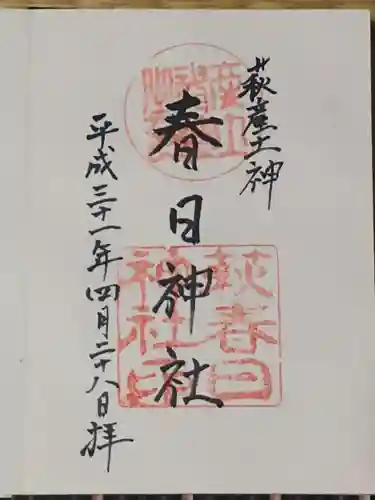 萩産土神
春日神社
平成三十一年四月二十八日拝